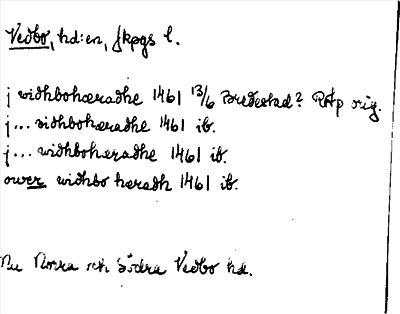 Vedbo, hd:en, Jkpgs l.
j widhbohæradhe 1461 13/6 Bredestad? RAp orig.
j... widhbohæradhe 1461 ib.
j... widhbohæradhe 1461 ib.
ower widhbo hæradh 1461 ib.
Nu Norra och Södra Vedbo hd.